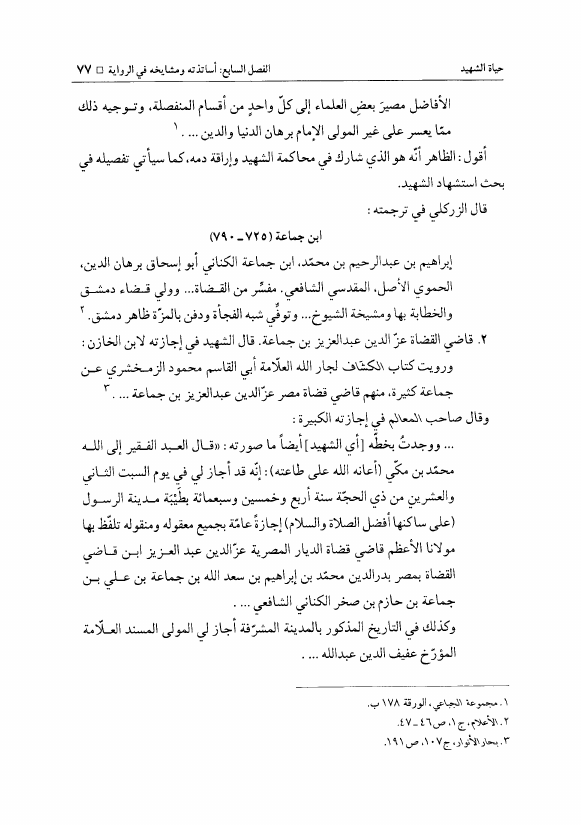 حياة الشهيد
الفصل السابع: أساتذته ومشايخه في الرواية □ ٧٧
الأفاضل مصيرَ بعضِ العلماء إلى كلّ واحدٍ من أقسام المنفصلة، وتوجيه ذلك
ممّا يعسر على غير المولى الإمام برهان الدنيا والدين ... .١
أقول: الظاهر أنّه هو الذي شارك في محاكمة الشهيد وإراقة دمه، كما سيأتي تفصيله في
بحث استشهاد الشهيد.
قال الزركلي في ترجمته:
ابن جماعة (٧٢٥ ـ ٧٩٠)
إبراهيم بن عبدالرحيم بن محمّد، ابن جماعة الكناني أبو إسحاق برهان الدين،
الحموي الأصل، المقدسي الشافعي. مفسِّر من القضاة... وولي قضاء دمشق
والخطابة بها ومشيخة الشيوخ... وتوفِّي شبه الفجأة ودفن بالمزّة ظاهر دمشق.٢
٢. قاضي القضاة عزّ الدين عبدالعزيز بن جماعة. قال الشهيد في إجازته لابن الخازن:
ورويت كتاب الكشّاف لجار الله العلّامة أبي القاسم محمود الزمخشري عن
جماعة كثيرة، منهم قاضي قضاة مصر عزّالدين عبدالعزيز بن جماعة ... .٣
وقال صاحب المعالم في إجازته الكبيرة:
... ووجدتُ بخطّه [أي الشهيد] أيضاً ما صورته: «قال العبد الفقير إلى الله
محمّد بن مكّي (أعانه الله على طاعته): إنّه قد أجاز لي في يوم السبت الثاني
والعشرين من ذي الحجّة سنة أربع وخمسين وسبعمائة بطَيْبَة مدينة الرسول
(على ساكنها أفضل الصلاة والسلام) إجازةً عامّة بجميع معقوله ومنقوله تلفّظ بها
مولانا الأعظم قاضي قضاة الديار المصرية عزّالدين عبد العزيز ابن قاضي
القضاة بمصر بدرالدين محمّد بن إبراهيم بن سعد الله بن جماعة بن علي بن
جماعة بن حازم بن صخر الكناني الشافعي ... .
وكذلك في التاريخ المذكور بالمدينة المشرّفة أجاز لي المولى المسند العلّامة
المؤرّخ عفيف الدين عبدالله ... .
١. مجموعة الجباعي، الورقة ١٧٨ ب.
٢. الأعلام، ج ١، ص ٤٦ ـ ٤٧.
٣. بحار الأنوار، ج ١٠٧، ص ١٩١.